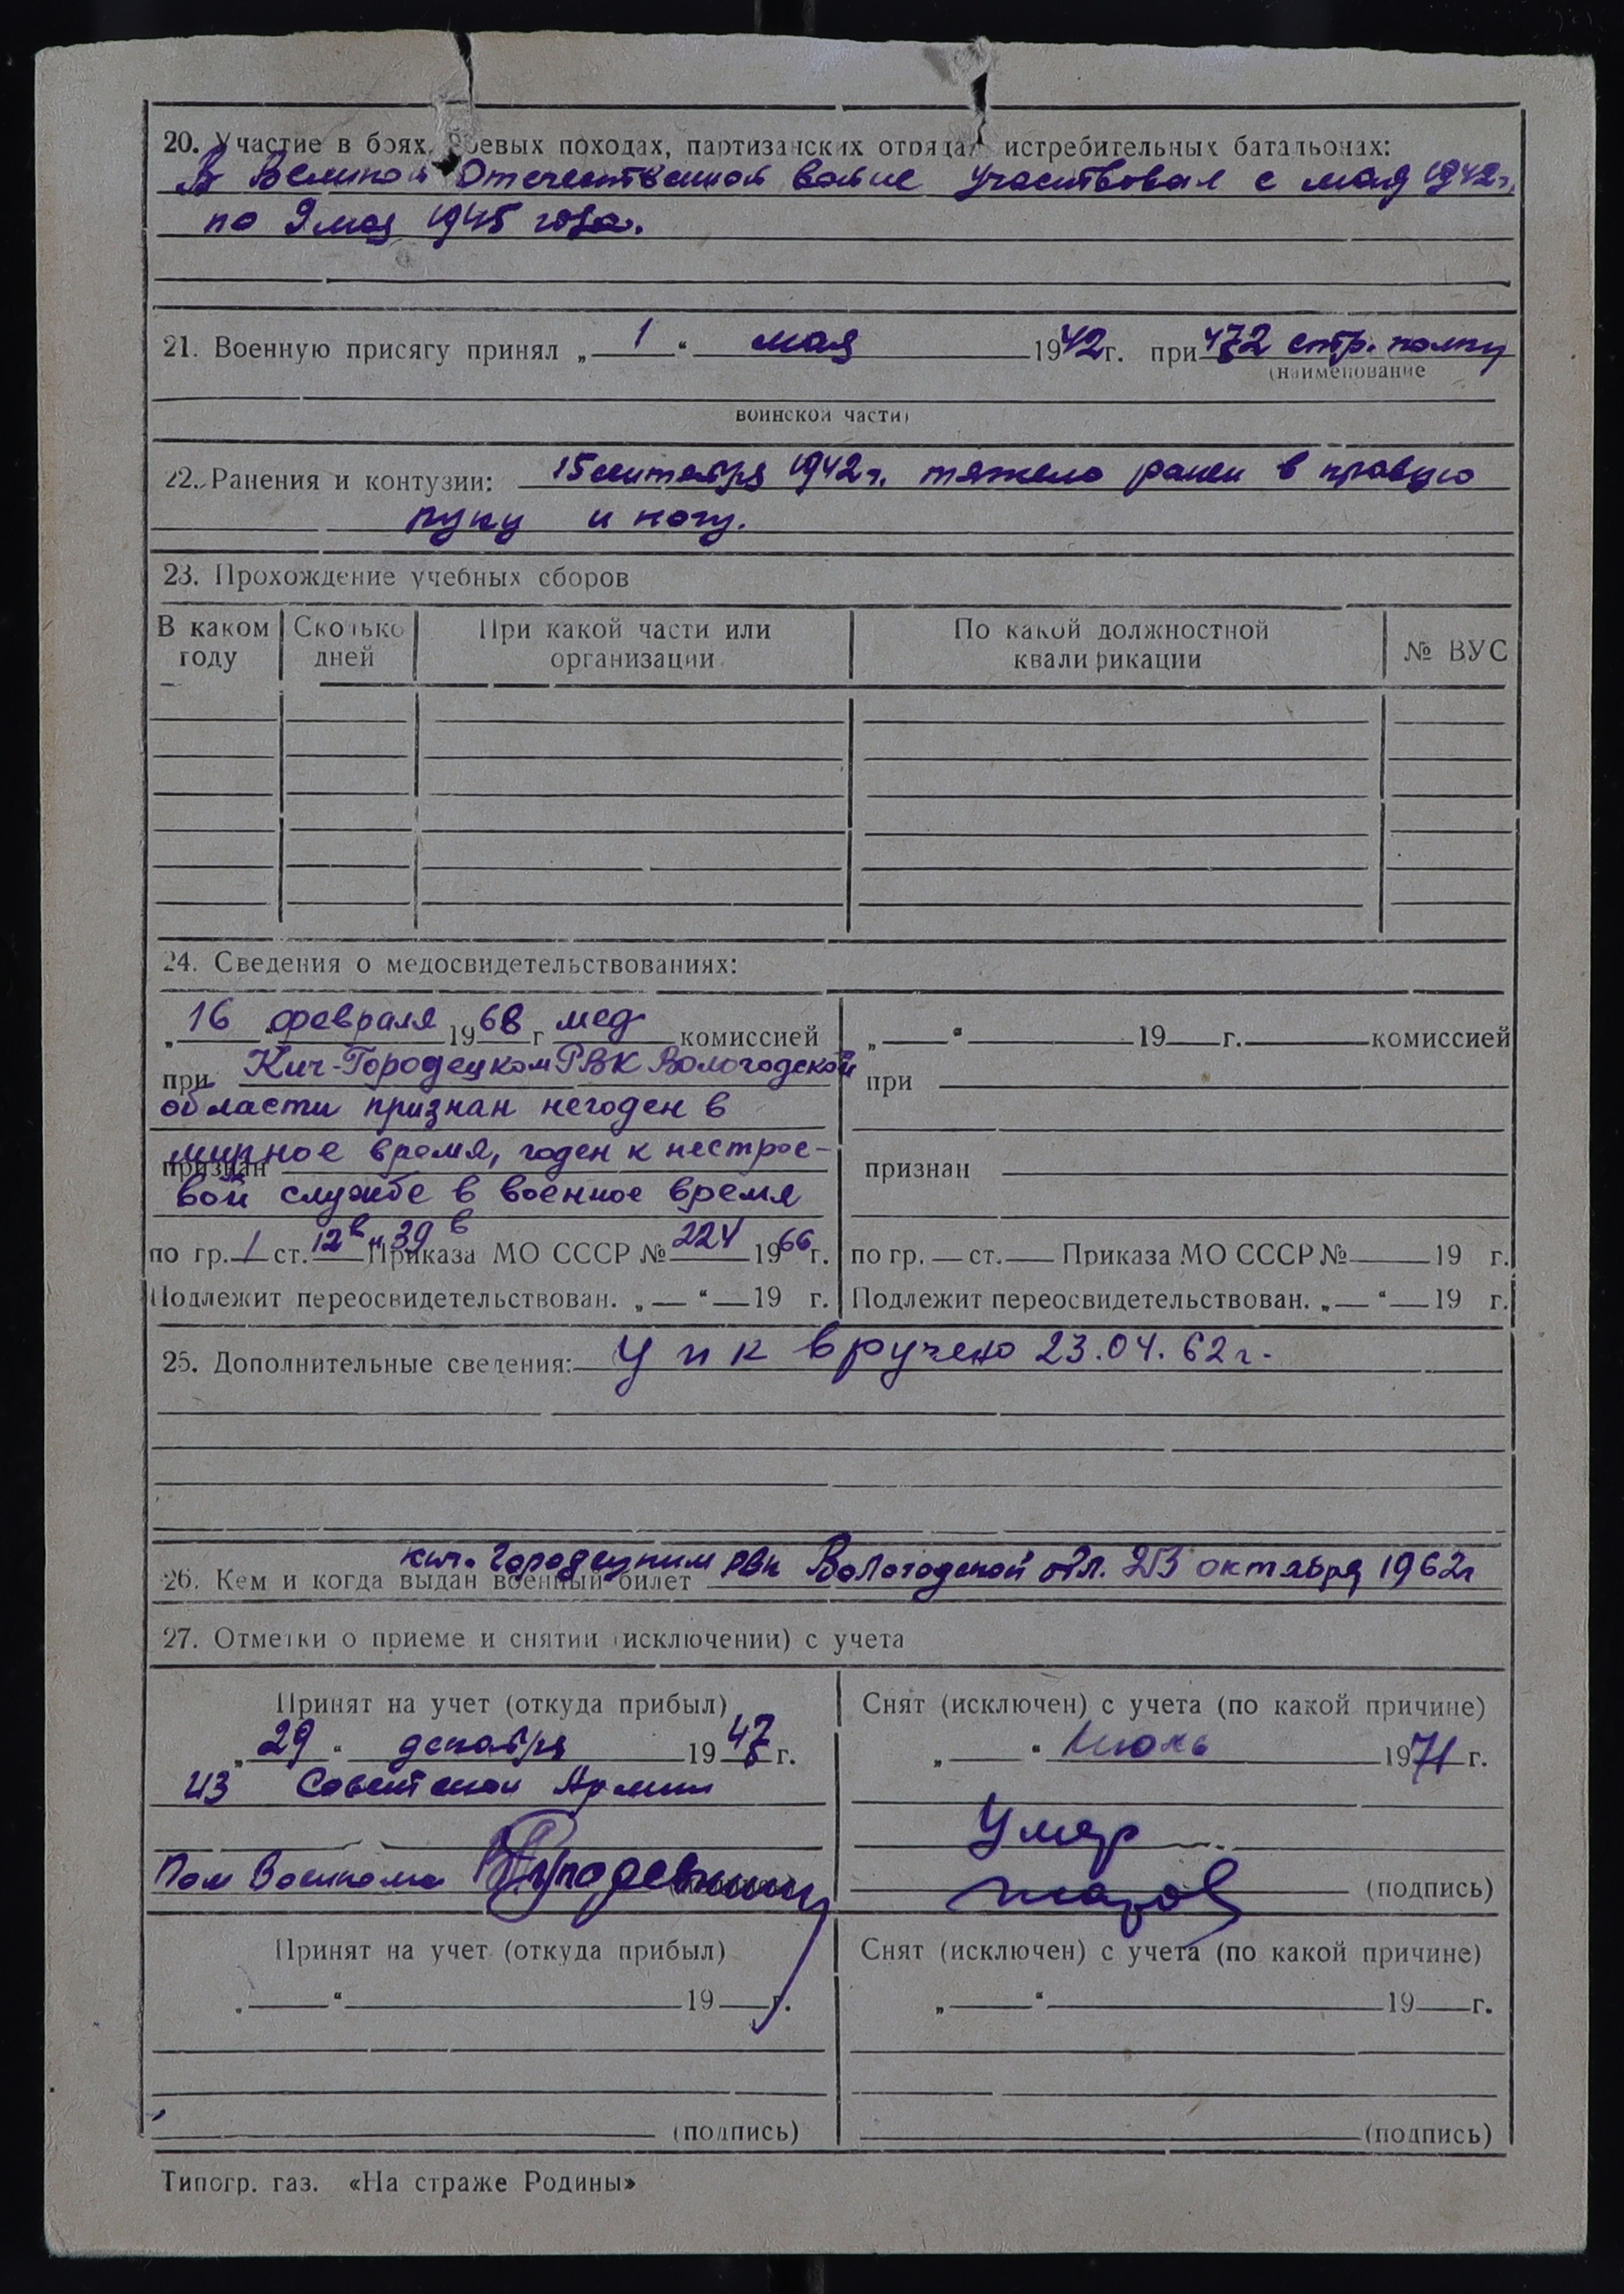 20. Участие в боях, боевых походах, партизанских отрядах, истребительных батальонах:
В Великой Отечественной войне участвовал с мая 1942 г.
по 9 мая 1945 года.
21. Военную присягу принял „ 1 “ мая 1942 г. при 472 стр. полку
(наименование
воинской части)
22. Ранения и контузии: 15 сентября 1942 г. тяжело ранен в правую
руку и ногу.
23. Прохождение учебных сборов
В каком году Сколько дней При какой части или организации По какой должностной квалификации № ВУС
24. Сведения о медосвидетельствованиях:
„ 16 “ февраля 1968 г мед комиссией
при Кич-Городецком РВК Вологодской
области признан негоден в
признан мирное время, годен к нестрое-
вой службе в военное время
по гр. 1 ст. 12в и 39в Приказа МО СССР № 224 1966 г.
Подлежит переосвидетельствован. „ “ 19 г.
„ “ 19 г. комиссией
при
признан
по гр. ст. Приказа МО СССР № 19 г.
Подлежит переосвидетельствован. „ “ 19 г.
25. Дополнительные сведения: УПК вручено 23.04.62 г.
26. Кем и когда выдан военный билет Кич. Городецким РВК Вологодской обл. октября 1962 г
27. Отметки о приеме и снятии (исключении) с учета
Принят на учет (откуда прибыл)
„ 29 “ декабря 1947 г.
из Советской Армии
Пом Военкома
Снят (исключен) с учета (по какой причине)
„ “ Июнь 1971 г.
Умер
(подпись)
Принят на учет (откуда прибыл)
„ “ 19 г.
(подпись)
Снят (исключен) с учета (по какой причине)
„ “ 19 г.
(подпись)
Типогр. газ. «На страже Родины»